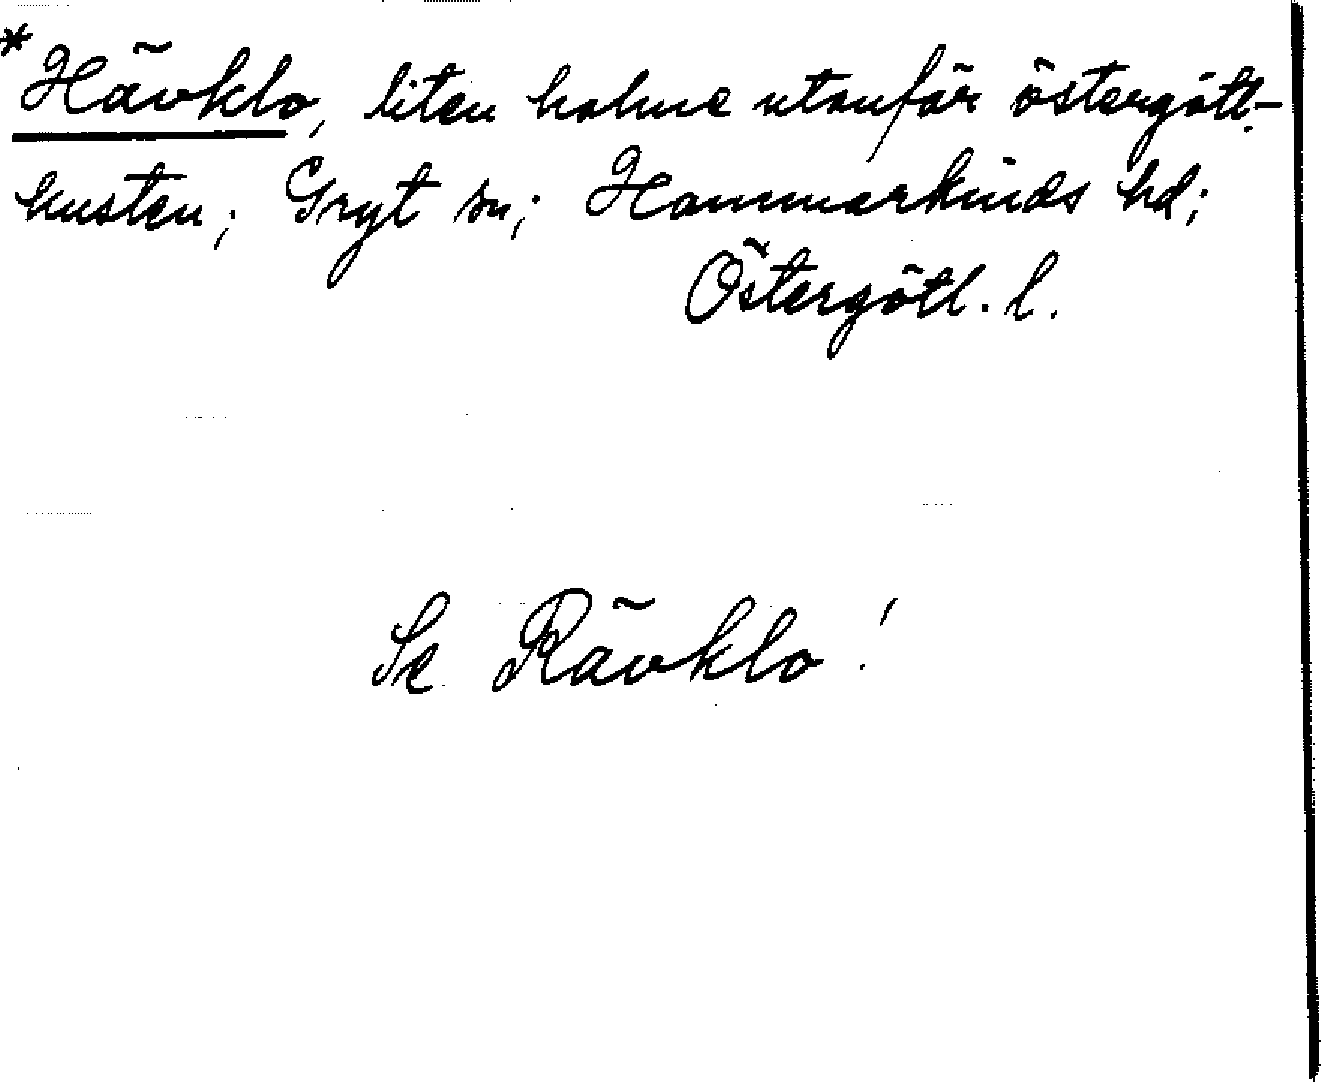 *Hävklo, liten holme utanför östergötl.-
kusten; Gryt sn; Hammarkinds hd;
Östergötl. l.
Se Rävklo!